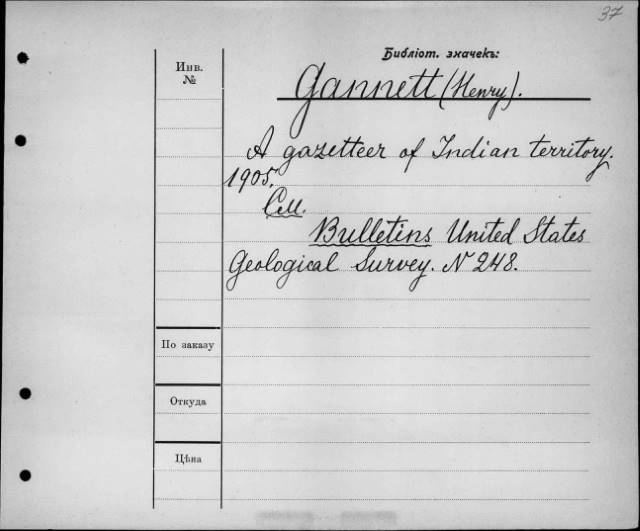 37
Библіот. значекъ:
Инв.
№
Gannett (Henry).
A gazetteer of Indian territory.
1905.
См.
Bulletins United States
Geological Survey. N 248.
По заказу
Откуда
Цѣна